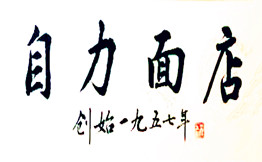 自力面店
创始一九五七年